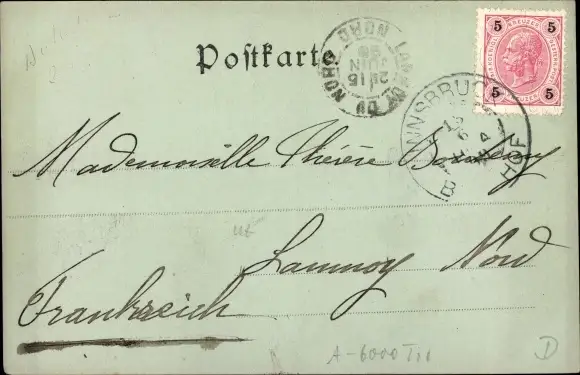 Postkarte
LANNOY DU NORD NORD
2E 15
JUIN
98
5 KREUZER 5
5 5
INNSBRUCK
BAHNHOF
Mademoiselle Thérèse
Lannoy Nord
Frankreich
A-6000
D